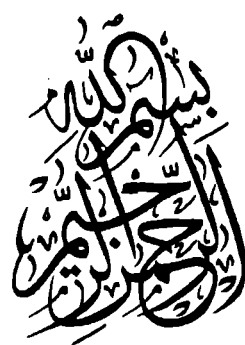 بِسْمِ اللهِ
الرَّحْمٰنِ الرَّحِيْمِ